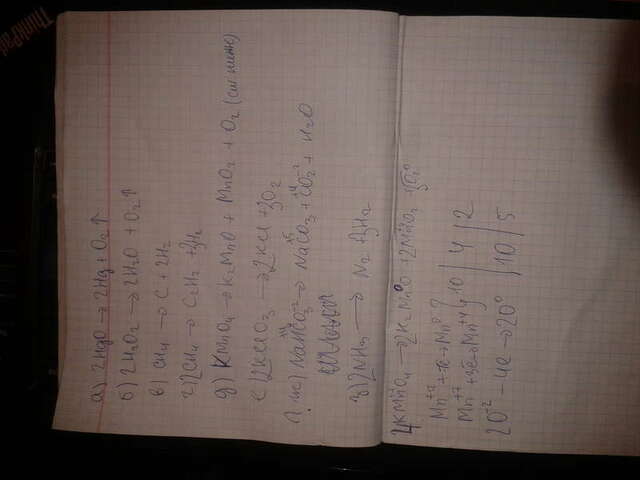 ThinkPad
а) 2HgO → 2Hg + O₂↑
б) 2H₂O₂ → 2H₂O + O₂↑
в) CH₄ → C + 2H₂
г) 2CH₄ → C₂H₂ + 3H₂
д) KMnO₄ → K₂MnO + MnO₂ + O₂ (см ниже)
е) 2KClO₃ → 2KCl + 3O₂
ж) NaHCO₃ → NaCO₃ + CO₂ + H₂O
з) 2NH₃ → N₂ + 3H₂
4KMnO₄ → 2K₂MnO + 2MnO₂ + 5O₂⁰
Mn⁺⁷ + 3e → Mn⁺⁴
2O⁻² - 4e → 2O⁰ | 10 | 5